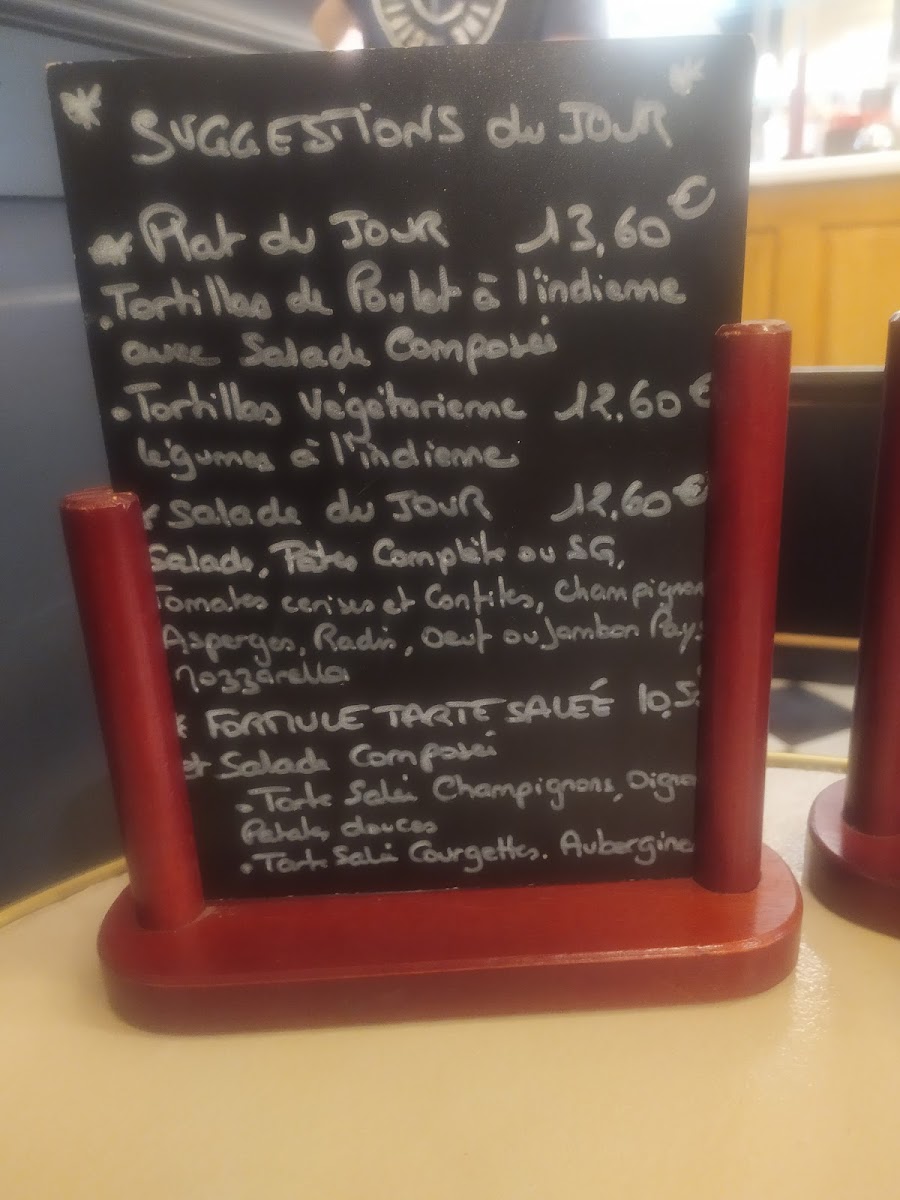 * SUGGESTIONS du JOUR *
* Plat du JOUR 13,60€
. Tortillas de Poulet à l'indienne
avec Salade Composée
• Tortillas Végétarienne 12,60€
légumes à l'indienne
* Salade du JOUR 12,60€
Salade, Pâtes Complète ou SG,
Tomates cerises et Confites, Champignon
Asperges, Radis, Oeuf ou Jambon Pays
Mozzarella
* FORMULE TARTE SALÉE 10,5
et Salade Composée
• Tarte Salée Champignons, Oigno
Patate douces
• Tarte Salée Courgettes. Aubergine